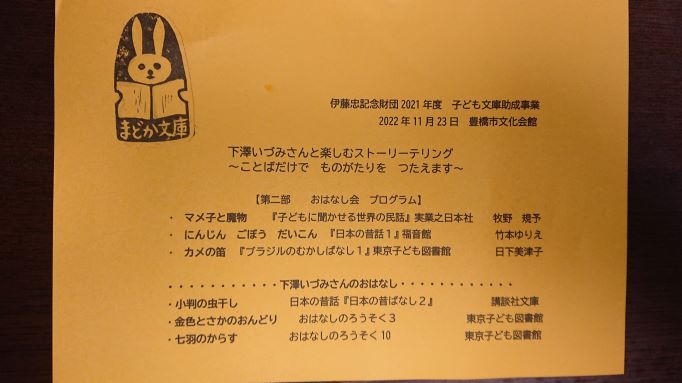 まどか文庫
伊藤忠記念財団2021年度　子ども文庫助成事業
2022年11月23日　豊橋市文化会館
下澤いづみさんと楽しむストーリーテリング
～ことばだけで　ものがたりを　つたえます～
【第二部　　おはなし会　プログラム】
・ マメ子と魔物　『子どもに聞かせる世界の民話』実業之日本社　牧野　規予
・ にんじん　ごぼう　だいこん　『日本の昔話１』福音館　竹本ゆりえ
・ カメの笛　『ブラジルのむかしばなし１』東京子ども図書館　日下美津子
・・・・・・・・・・・下澤いづみさんのおはなし・・・・・・・・・・・・
・小判の虫干し　日本の昔話『日本の昔ばなし２』　講談社文庫
・金色とさかのおんどり　おはなしのろうそく３　東京子ども図書館
・七羽のからす　おはなしのろうそく10　東京子ども図書館